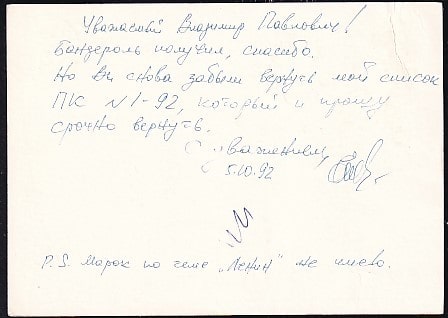 Уважаемый Владимир Павлович!
Бандероль получил, спасибо.
Но Вы снова забыли вернуть мой список
ПК N1-92, который и прошу
срочно вернуть.
С уважением,
5.10.92
P.S. Марок по теме „Ленин" не имею.